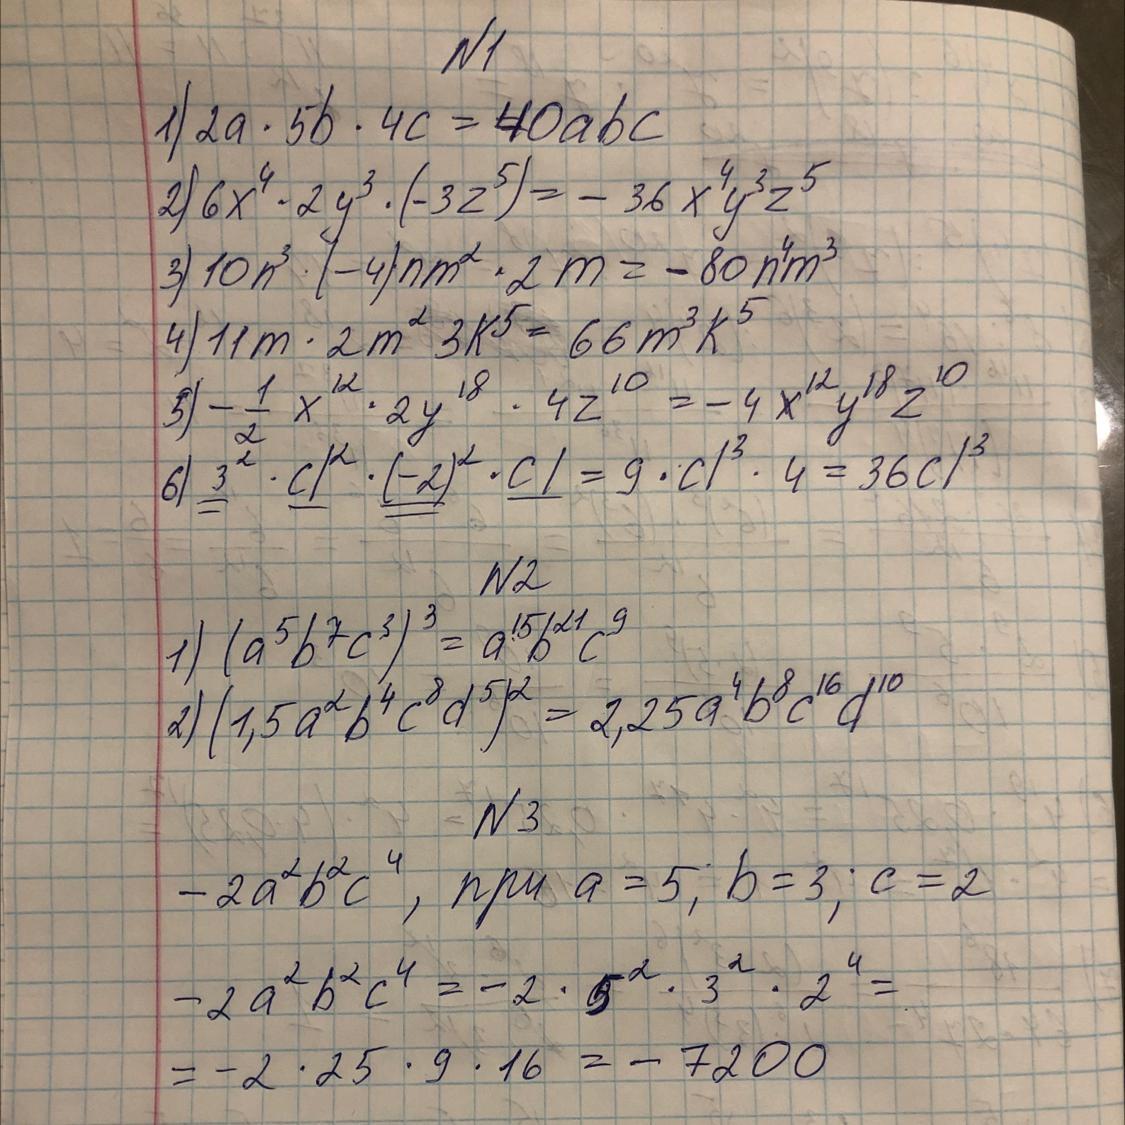 N1
1) 2a · 5b · 4c = 40abc
2) 6x⁴ · 2y³ · (-3z⁵) = - 36 x⁴y³z⁵
3) 10n³ · (-4)nm² · 2m = -80n⁴m³
4) 11m · 2m² 3k⁵ = 66m³k⁵
5) - 1/2 x¹² · 2y¹⁸ · 4z¹⁰ = -4x¹²y¹⁸z¹⁰
6) 3² · d² · (-2)² · d = 9 · d³ · 4 = 36d³
N2
1) (a⁵b⁷c³)³ = a¹⁵b²¹c⁹
2) (1,5a²b⁴c⁸d⁵)² = 2,25a⁴b⁸c¹⁶d¹⁰
N3
-2a²b²c⁴, при a = 5; b = 3; c = 2
-2a²b²c⁴ = -2 · 5² · 3² · 2⁴ =
= -2 · 25 · 9 · 16 = - 7200